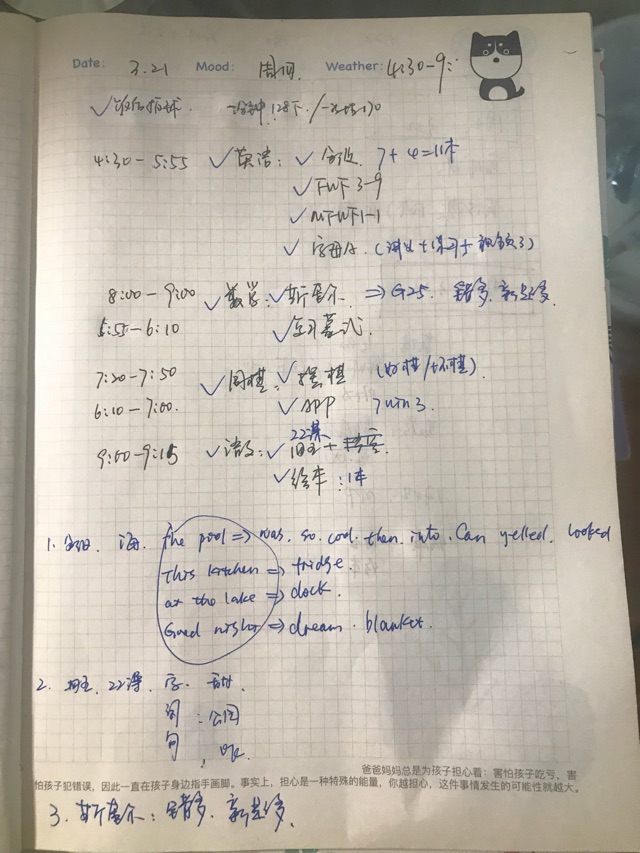 Date: 3.21 Mood: 周四 Weather: 4:30-9:
✓ 一分钟128下 /
4:30-5:55 ✓英语: ✓分级 7+4=11本
✓FWF 3-9
✓MFWF1-1
✓字母A (讲义+练习+视频3)
8:00-9:00 ✓数学: ✓斯奎尔 ⇒G25. 错多,新题多.
5:55-6:10 ✓
7:20-7:50 ✓围棋: ✓摆棋 (好棋/坏棋).
6:10-7:00. ✓APP 7 win 3.
22课
9:00-9:15 ✓语文: ✓ +
✓绘本:1本
1. 分级. the pool ⇒ was. so. cool. then. into. Can yelled. looked
This kitchen ⇒ fridge.
at the lake ⇒ dock.
Good night ⇒ dream. blanket.
2. 22课. 字. 甜.
词:公园
句, ok.
爸爸妈妈总是为孩子担心着:害怕孩子吃亏,害
怕孩子犯错误,因此一直在孩子身边指手画脚。事实上,担心是一种特殊的能量,你越担心,这件事情发生的可能性就越大。
3. 斯奎尔:错多. 新题多.